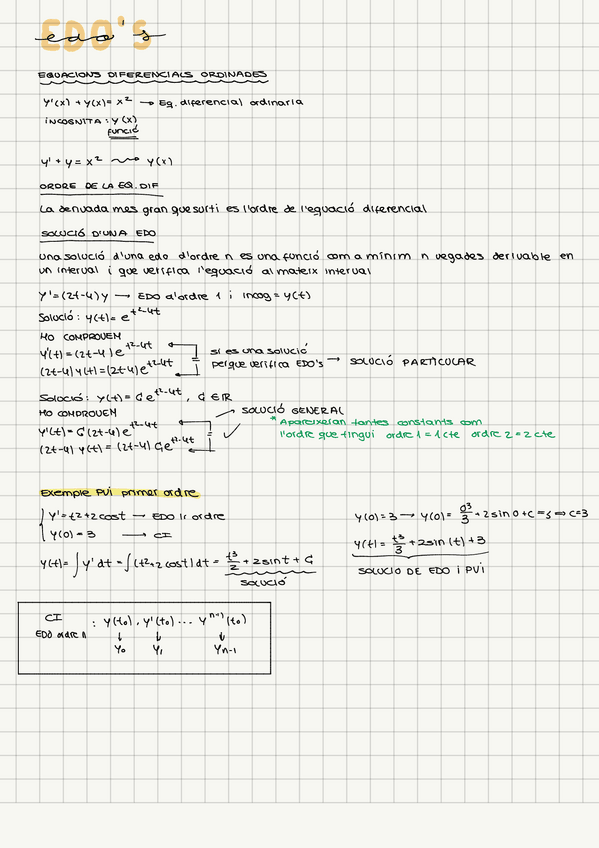 EDO'S
edo's
EQUACIONS DIFERENCIALS ORDINADES
y'(x) + y(x) = x² → Eq. diferencial ordinaria
INCOGNITA: y(x)
funció
y' + y = x² ⇝ y(x)
ORDRE DE LA EQ. DIF
La derivada mes gran que surti es l'ordre de l'equació diferencial
SOLUCIÓ D'UNA EDO
una solució d'una edo d'ordre n es una funció com a mínim n vegades derivable en
un interval i que verifica l'equació al mateix interval
y' = (2t-4)y → EDO d'ordre 1 i incog = y(t)
Solució: y(t) = e^(t²-4t)
HO COMPROVEM
y'(t) = (2t-4) e^(t²-4t)
(2t-4) y(t) = (2t-4) e^(t²-4t)
=
si es una solució
perque verifica EDO's → SOLUCIÓ PARTICULAR
Solució: y(t) = C e^(t²-4t), C ∈ R
HO COMPROVEM
y'(t) = C (2t-4) e^(t²-4t)
(2t-4) y(t) = (2t-4) C e^(t²-4t)
= ✓
SOLUCIÓ GENERAL
* Apareixeran tantes constants com
l'ordre que tingui ordre 1 = 1 cte ordre 2 = 2 cte
Exemple PVI primer ordre
y' = t² + 2 cost → EDO 1r ordre
y(0) = 3 → CI
y(t) = ∫ y' dt = ∫ (t² + 2 cost) dt = t³/2 + 2 sint + C
SOLUCIÓ
y(0) = 3 → y(0) = 0³/3 + 2 sin 0 + C = 3 ⇔ C = 3
y(t) = t³/3 + 2 sin (t) + 3
SOLUCIO DE EDO i PVI
CI : y(t₀), y'(t₀) ... yⁿ⁻¹(t₀)
EDO ordre n ↓ ↓ ↓
y₀ y₁ yₙ₋₁